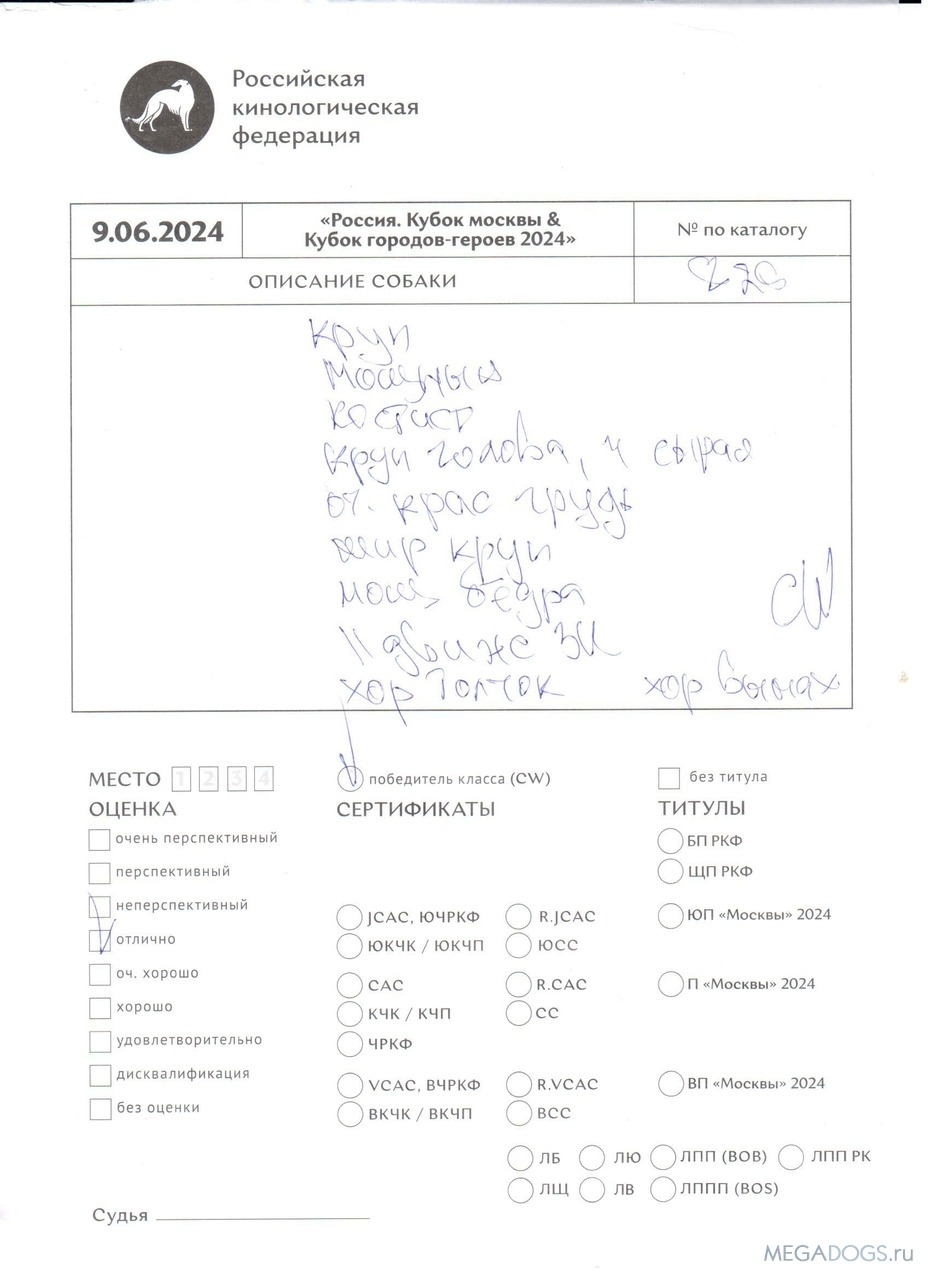 Российская
кинологическая
федерация
9.06.2024
«Россия. Кубок москвы &
Кубок городов-героев 2024»
№ по каталогу
ОПИСАНИЕ СОБАКИ
круп
мощный
костист
круп голова, ч сырая
оч. крас грудь
шир круп
мощ бедра
CW
11 движс ЗК
хор толчок хор вымах
МЕСТО 1 2 3 4
победитель класса (CW)
без титула
ОЦЕНКА
СЕРТИФИКАТЫ
ТИТУЛЫ
очень перспективный
БП РКФ
перспективный
ЩП РКФ
неперспективный
JCAC, ЮЧРКФ
R.JCAC
ЮП «Москвы» 2024
отлично
ЮКЧК / ЮКЧП
ЮСС
оч. хорошо
CAC
R.CAC
П «Москвы» 2024
хорошо
КЧК / КЧП
СС
удовлетворительно
ЧРКФ
дисквалификация
VCAC, ВЧРКФ
R.VCAC
ВП «Москвы» 2024
без оценки
ВКЧК / ВКЧП
ВСС
ЛБ ЛЮ ЛПП (BOB) ЛПП РК
ЛЩ ЛВ ЛППП (BOS)
Судья
MEGADOGS.ru